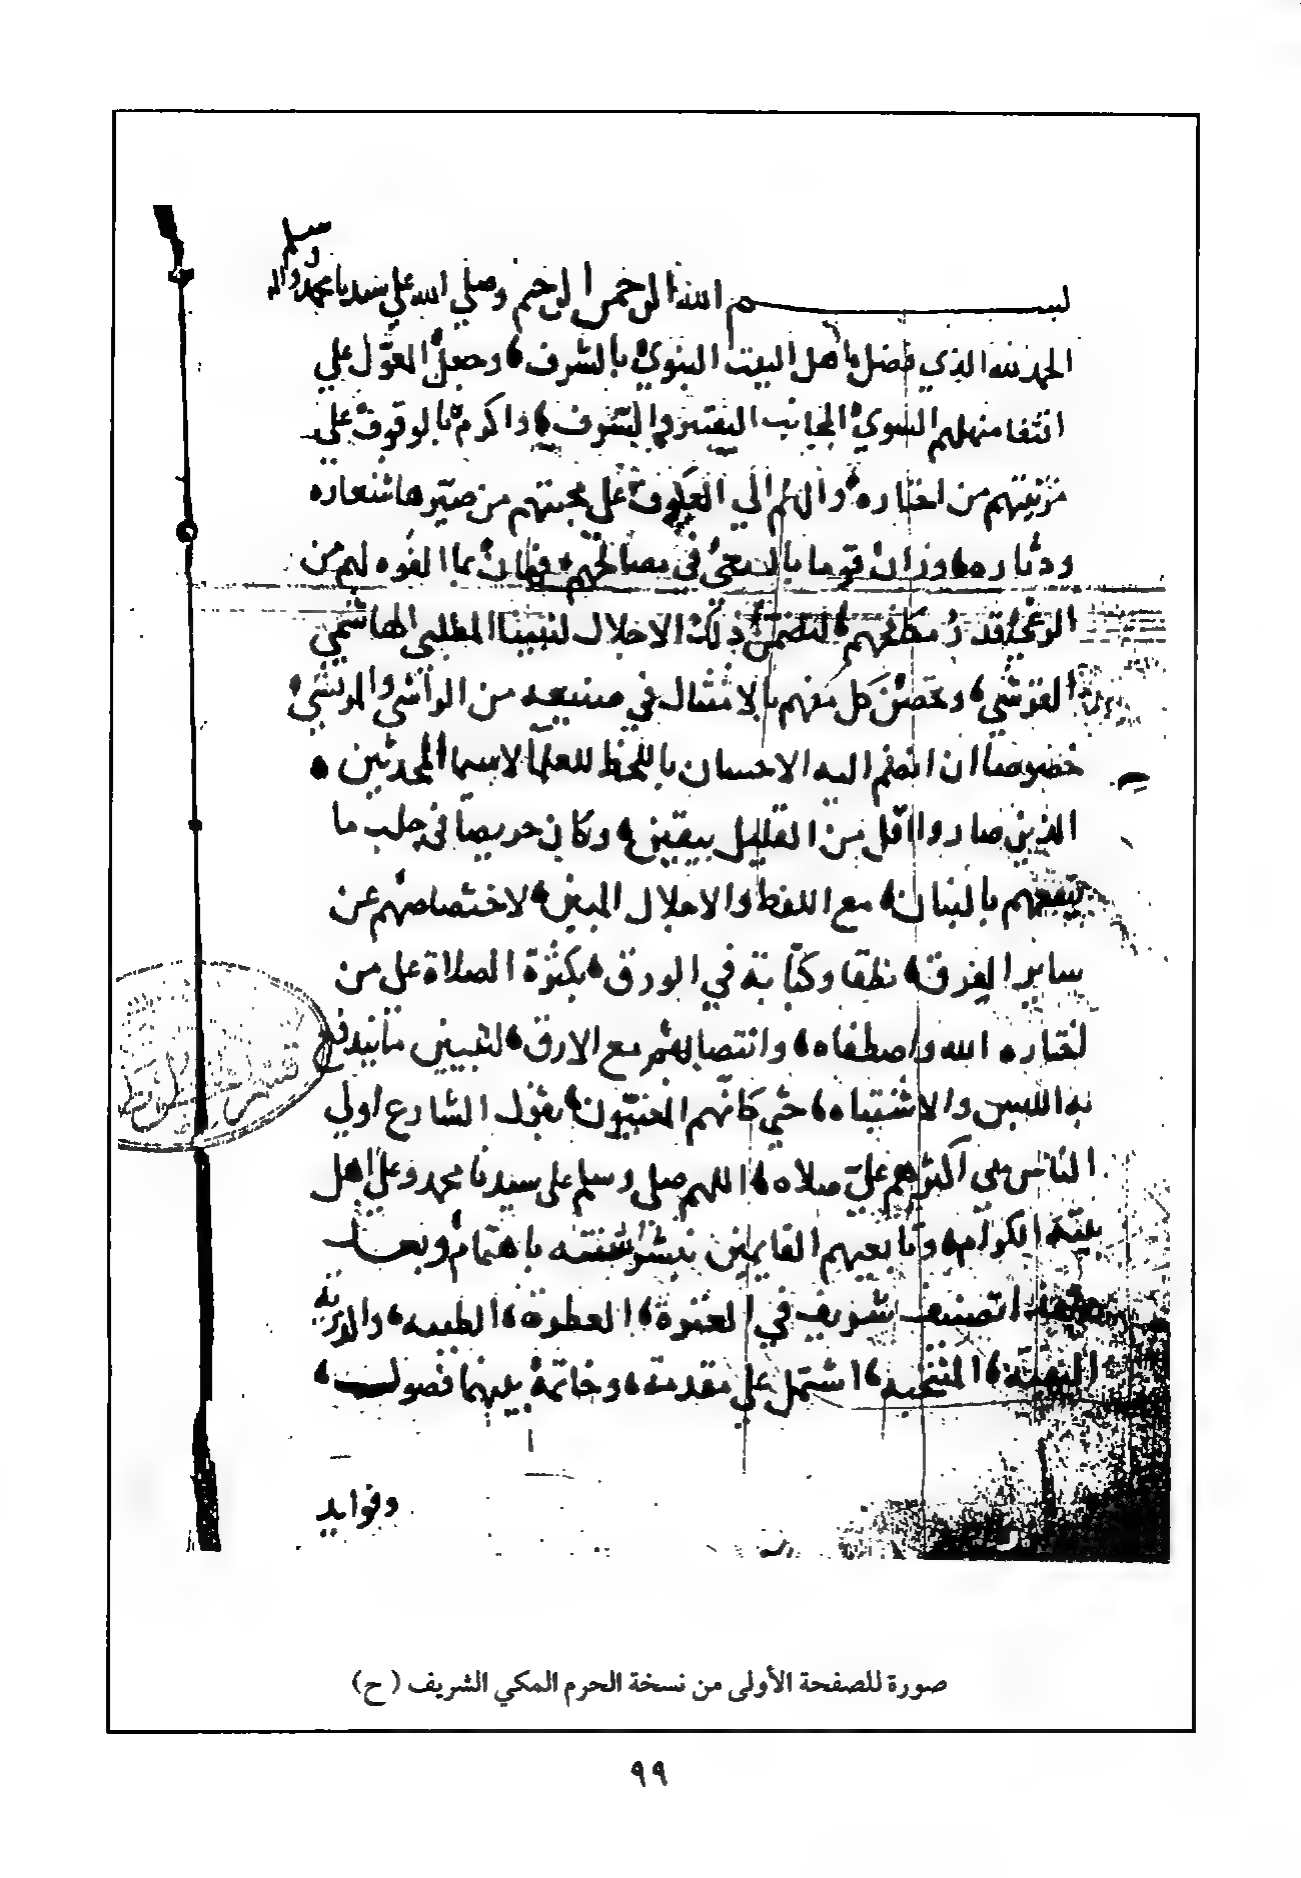 بسم الله الرحمن الرحيم وصلى الله على سيدنا محمد واله
وسلم
الحمد لله الذي فضل اهل البيت النبوي بالشرف وجعل المعول على
انتفا منهلهم السوي المجانب
من اختاره والهم الى العكوف على محبتهم من صير ها شعاره
ودثاره وزان قوما بالسعي في مصالحهم بما الفوه لهم من
لتضمن ذلك الاجلال لنبينا المطلبي الهاشمي
القرشي وخصن كل منهم بالامتثال في من الواشي والمرتشي
خصوصا ان انضم اليه الاحسان باللحظ للعلما لاسيما المحدثين
الذين صاروا اقل من القليل بيقين وكان حريصا في جلب ما
ينفعهم بالبنان مع اللفظ والاجلال المبين لاختصاصهم عن
ساير الفرق نطقا وكتابة في الورق بكثرة الصلاة على من
اختاره الله واصطفاه وانتصابهم مع الارق لتبيين ما
به اللبس والاشتباه حتى كانهم المعنيون بقول الشارع اولى
الناس بي اكثرهم علي صلاه اللهم صل وسلم على سيدنا محمد وعلى اهل
بيته الكرام وتابعيهم القايمين بنشر سنته باهتمام وبعد
فهذا تصنيف شريف في العترة العطره الطيبه والذرية
البهية المنتخبه اشتمل على مقدمة وخاتمة بينهما فصول
وفوايد
صورة للصفحة الأولى من نسخة الحرم المكي الشريف (ح)
٩٩